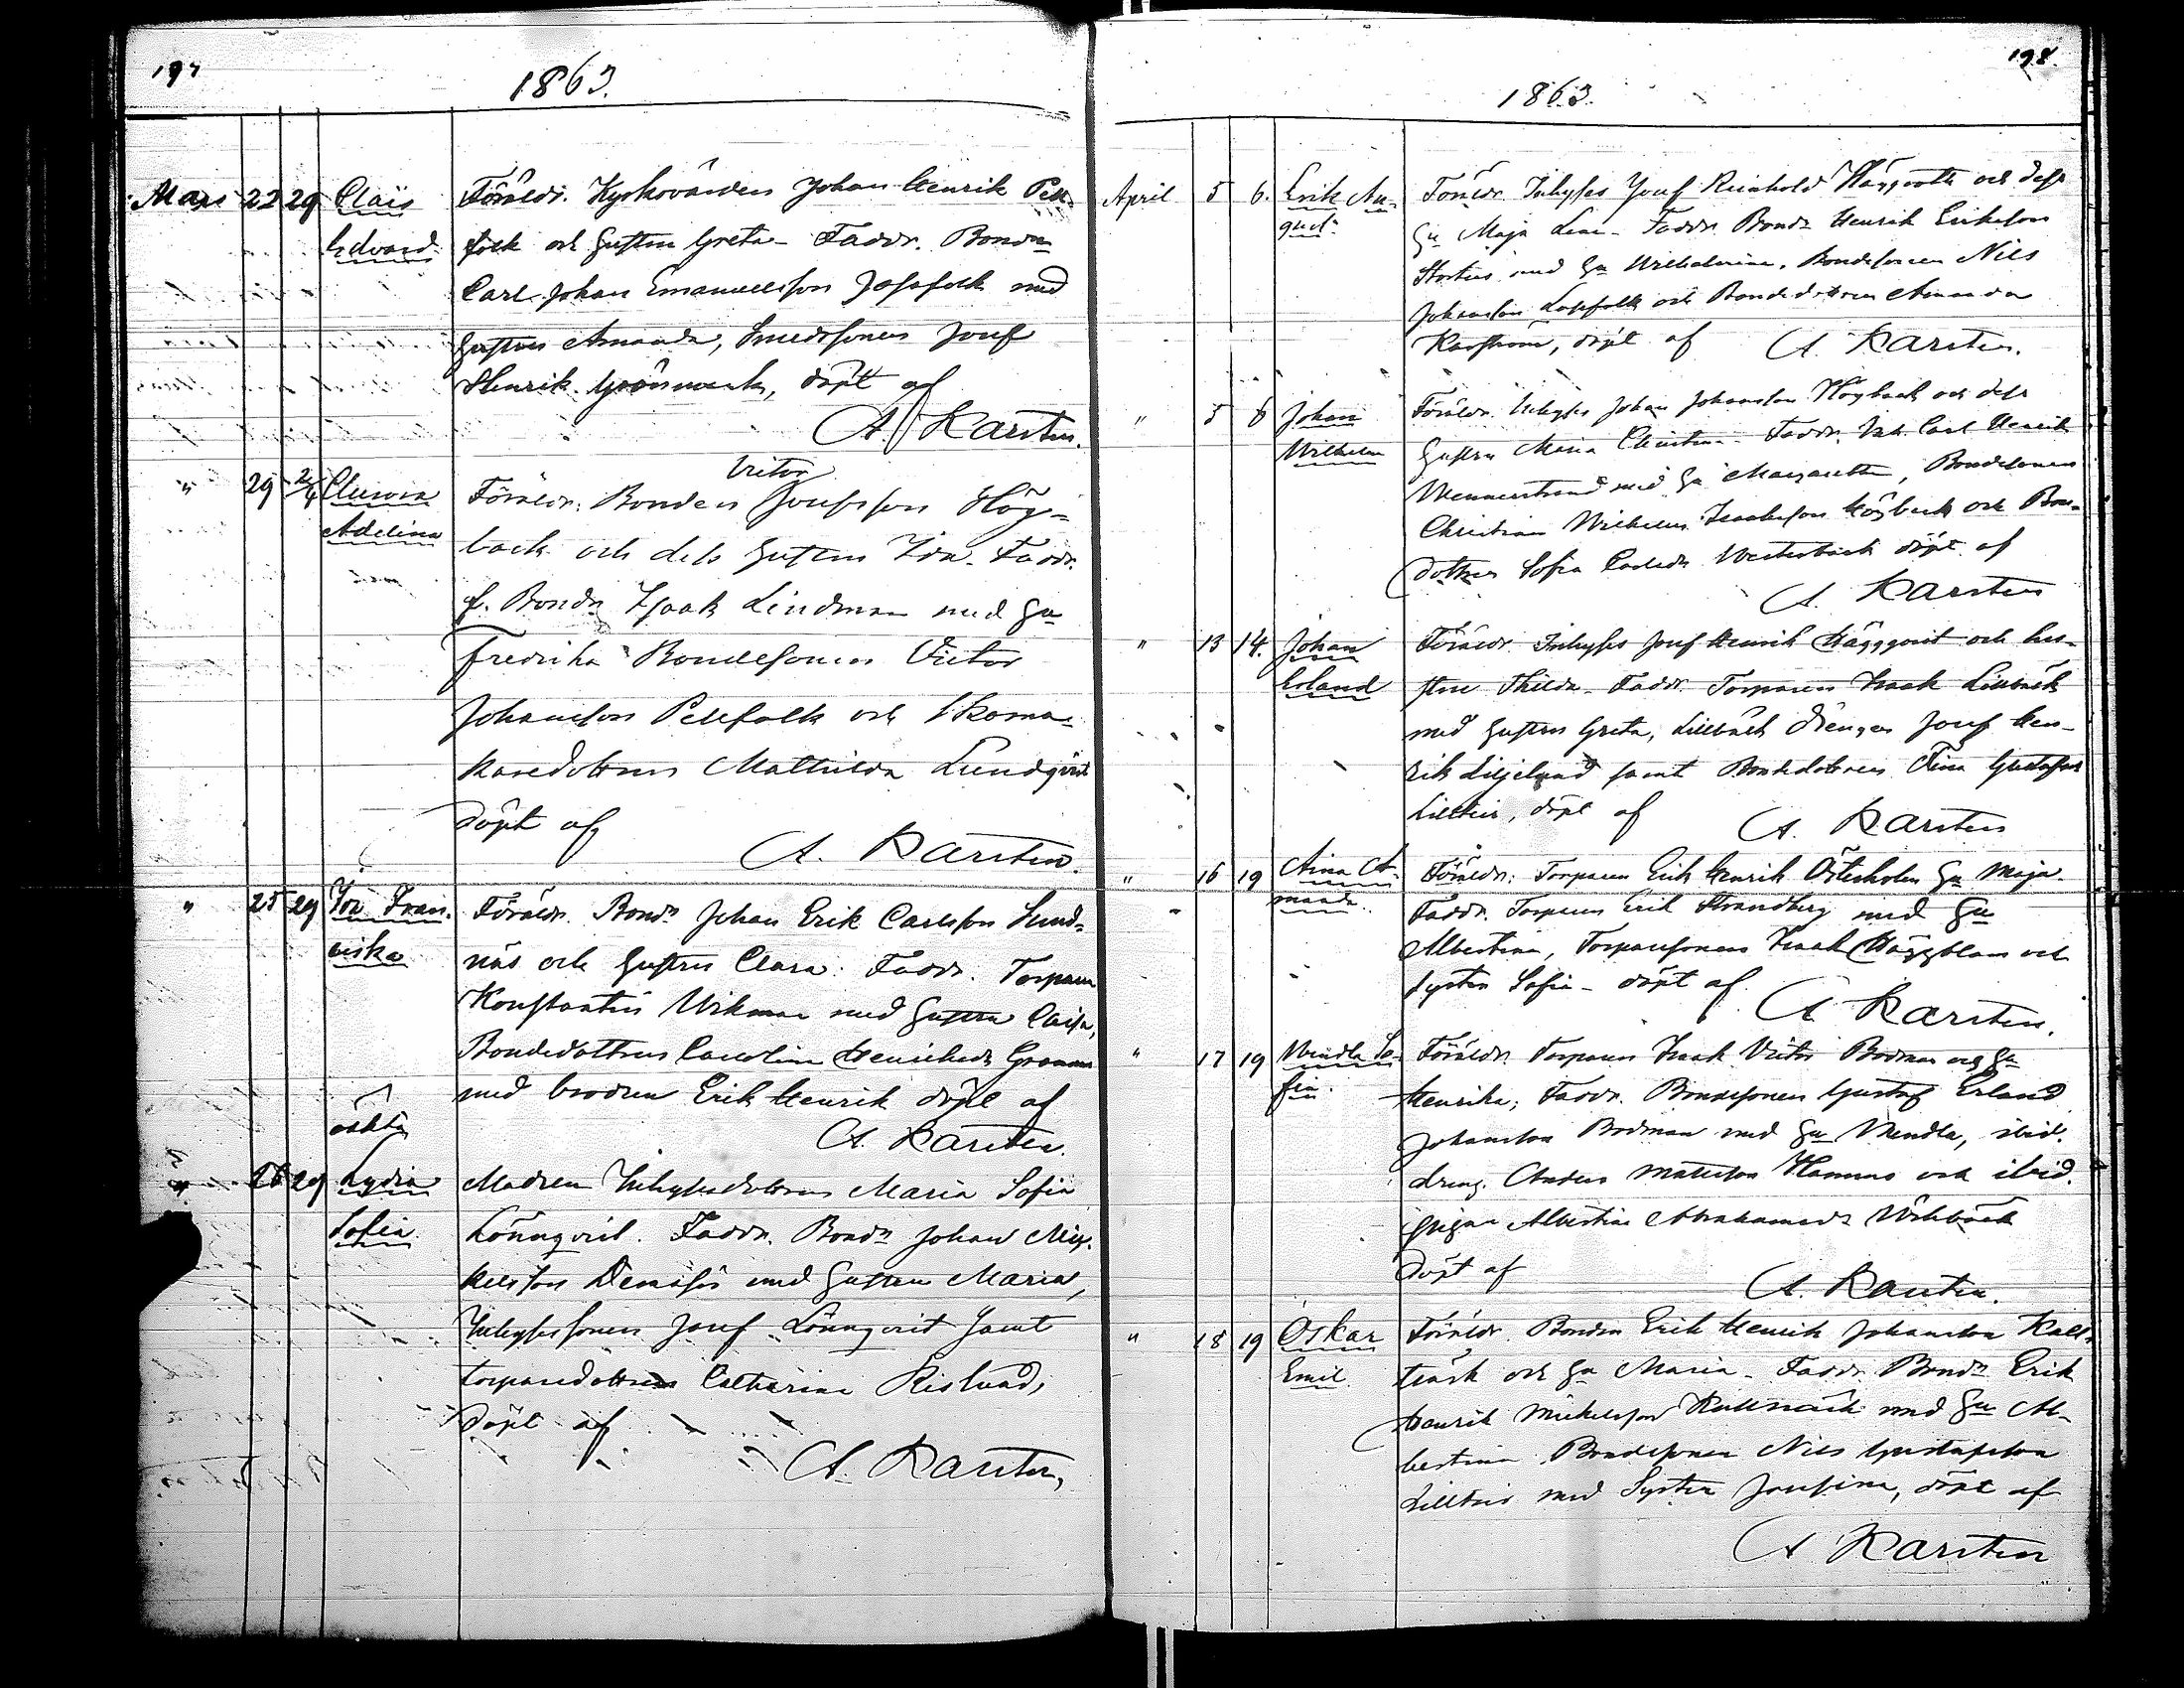 197
1863.
Mars 22 29 Claës Föräldr. Kyrkovärden Johan Henrik Pell-
Edvard folk och Hustrun Greta - Faddr. Bonden
Carl Johan Emanuelsson Jossfolk med
Hustrun Amanda, Smedsonen Josef
Henrik Grönmark, döpt af
A. Karsten.
Victor
" 29 2/4 Föräldr. Bonden Josefsson Hög-
Adelina back och dess Hustru Ida. Faddr.
f. Bondn Isaak Lindman med Hu
Fredrika Bondesonen Victor
Johansson Pellfolk och Skoma-
karedottren Mathilda Lundqvist
döpt af
A. Karsten.
" 25 29 Ida Fran- Föräldr. Bondn Johan Erik Carlsson Sund-
ciska näs och Hustrun Clara. Faddr. Torparen
Konstantin Wikman med Hustrun Caisa,
Bondedottren Carolina Henriksdr
med brodren Erik Henrik döpt af
A. Karsten.
oäkta
" 26 29 Lydia Modren Inhysesdottren Maria Sofia
Sofia Lönnqvist. Faddr. Bondn Johan Mic-
kelsson med Hustrun Maria,
Inhysessonen Josef Lönnqvist samt
torparedottren Catharina Risland,
döpt af
A. Karsten,
198.
1863.
April 5 6. Erik Au- Föräldr. Inhyses Josef Reinhold och dess
gust. Hu Maja Lena - Faddr. Bondn Henrik Eriksson
Stortus med Hu Wilhelmina, Bondesonen Nils
Johansson och Bondedottren Amanda
Karström, döpt af A. Karsten.
" 5 6 Johan Föräldr. Inhyses Johan Johansson Högback och dess
Wilhelm Hustru Maria Christina - Faddr. Inh. Carl Henrik
Wennerstrand med Hu Margaretha, Bondesonen
Christian Wilhelm Isaksson Högback och Bon-
dottren Sofia Carlsdr Westerback döpt af
A. Karsten
" 13 14. Johan Föräldr. Inhyses Josef Henrik Häggqvist och hus-
Erland trun Thilda. Faddr. Torparen Isaak Lillbäck
med Hustrun Greta, Lillbäck drengen Josef Hen-
rik Liljelund samt Bondedottren Gustafsdr
döpt af A. Karsten
" 16 19 Aina A- Föräldr: Torparen Erik Henrik Österholm Hu Maja
manda. Faddr. Torparen Erik Strandberg med Hu
Albertina, Torparesonen Isaak Häggblom och
Syster Sofia - döpt af A. Karsten.
" 17 19 Wendla So- Föräldr. Torparen Isaak Victor Bodman och Hu
fia. Henrika, Faddr. Bondesonen Gustaf Erland
Johansson Bodman med Hu Wendla, ibid.
dreng. Anders Mattsson och ibid.
pigan Albertina Abrahamsdr
döpt af A. Karsten.
" 18 19 Oskar Föräldr. Bonden Erik Henrik Johansson Kall-
Emil träsk och Hu Maria - Faddr. Bondn Erik
Henrik Mickelsson med Hu Al-
bertina Bondesonen Nils Gustafsson
med Syster Josefina, döpt af
A Karsten